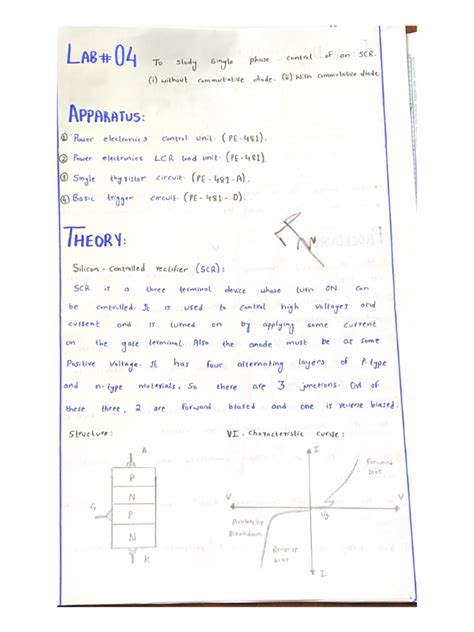 LAB#04 To study single phase control of an SCR.
(i) without commutative diode. (ii) With commutative diode
APPARATUS:
① Power electronics control unit. (PE-481).
② Power electronics LCR load unit. (PE-481).
③ Single thyristor circuit. (PE-481-A).
④ Basic trigger circuit. (PE-481-D).
THEORY:
Silicon-controlled rectifier (SCR):
SCR is a three terminal device whose turn ON can
be controlled. It is used to control high voltages and
current and is turned on by applying some current
on the gate terminal. Also the anode must be at some
Positive voltage. It has four alternating layers of P-type
and n-type materials, So there are 3 junctions. Out of
these three, 2 are forward biased and one is reverse biased.
Structure:
VI. Characteristic curve:
A
P
N
G
P
N
K
I
Forward
bias
V
V
Avalanche
Breakdown
Reverse
bias